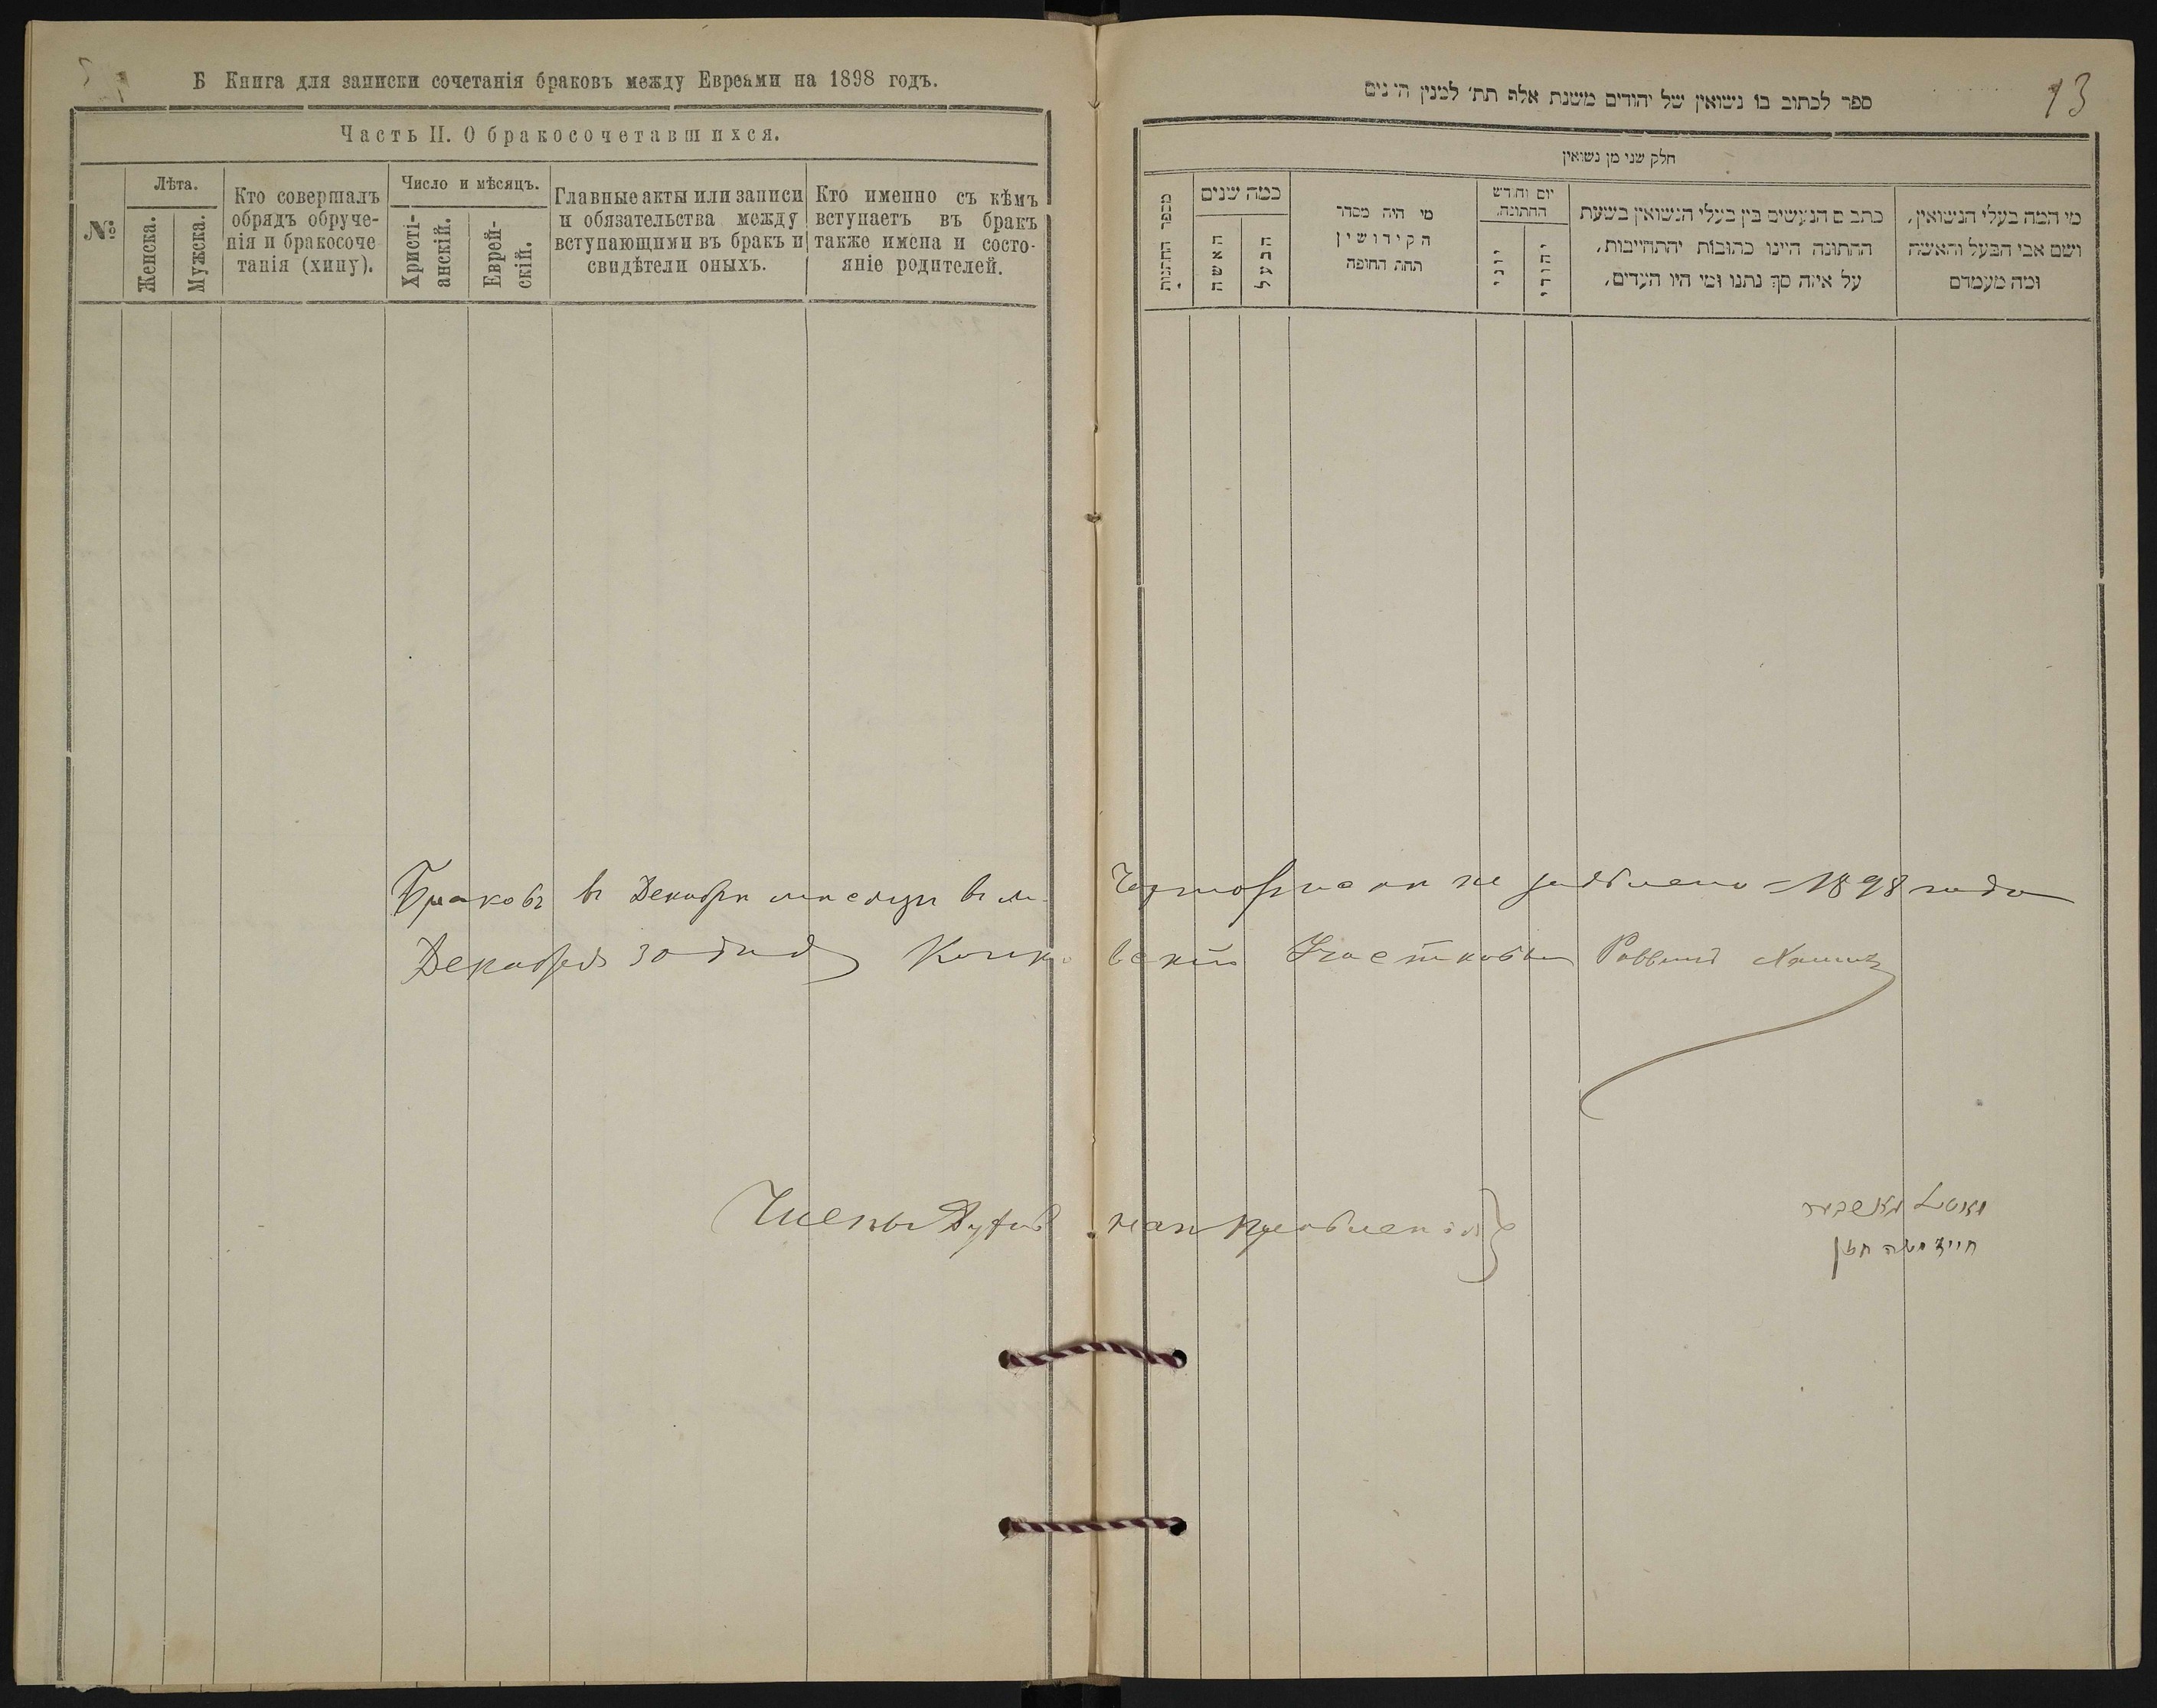 Б Книга для записки сочетанія браковъ между Евреями на 1898 годъ.
Часть II. О бракосочетавшихся.
№
Лѣта.
Женска.
Мужска.
Кто совершалъ
обрядъ обруче-
нія и бракосоче
танія (хипу).
Число и мѣсяцъ.
Христі-
анскій.
Еврей-
скій.
Главные акты или записи
и обязательства между
вступающими въ бракъ и
свидѣтели оныхъ.
Кто именно съ кѣмъ
вступаетъ въ бракъ
также имена и состо-
яніе родителей.
13
ספר לכתוב בו נשואין של יהודים משנת אלף תת׳ למנין
חלק שני מן נשואין
מספר החתנות
כמה שנים
האשה
הבעל
מי היה מסדר
הקידושין
תחת החופה
יום וחדש
החתונה.
יוני
יהודי
כתבים הנעשים בין בעלי הנשואין בשעת
החתונה היינו כתובות יהתחייבות,
על איזה סך נתנו ומי היו העדים,
מי המה בעלי הנשואין,
ושם אבי הבעל והאשה
ומה מעמדם
Браковъ въ Декабрѣ мѣсяцѣ въ м. не заявлено 1898 года
Декабря 30 дня Участковый Раввинъ
Члены Духов наго Правленія